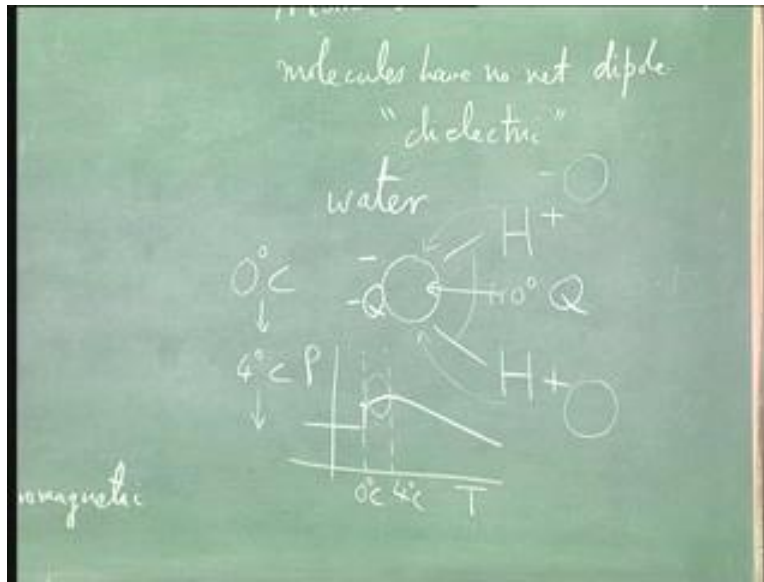 molecules have no net dipole
"dielectric"
water
-
H+
0°C
-
-Q
Q
4°C
P
H+
0°C 4°C T
omagnetic